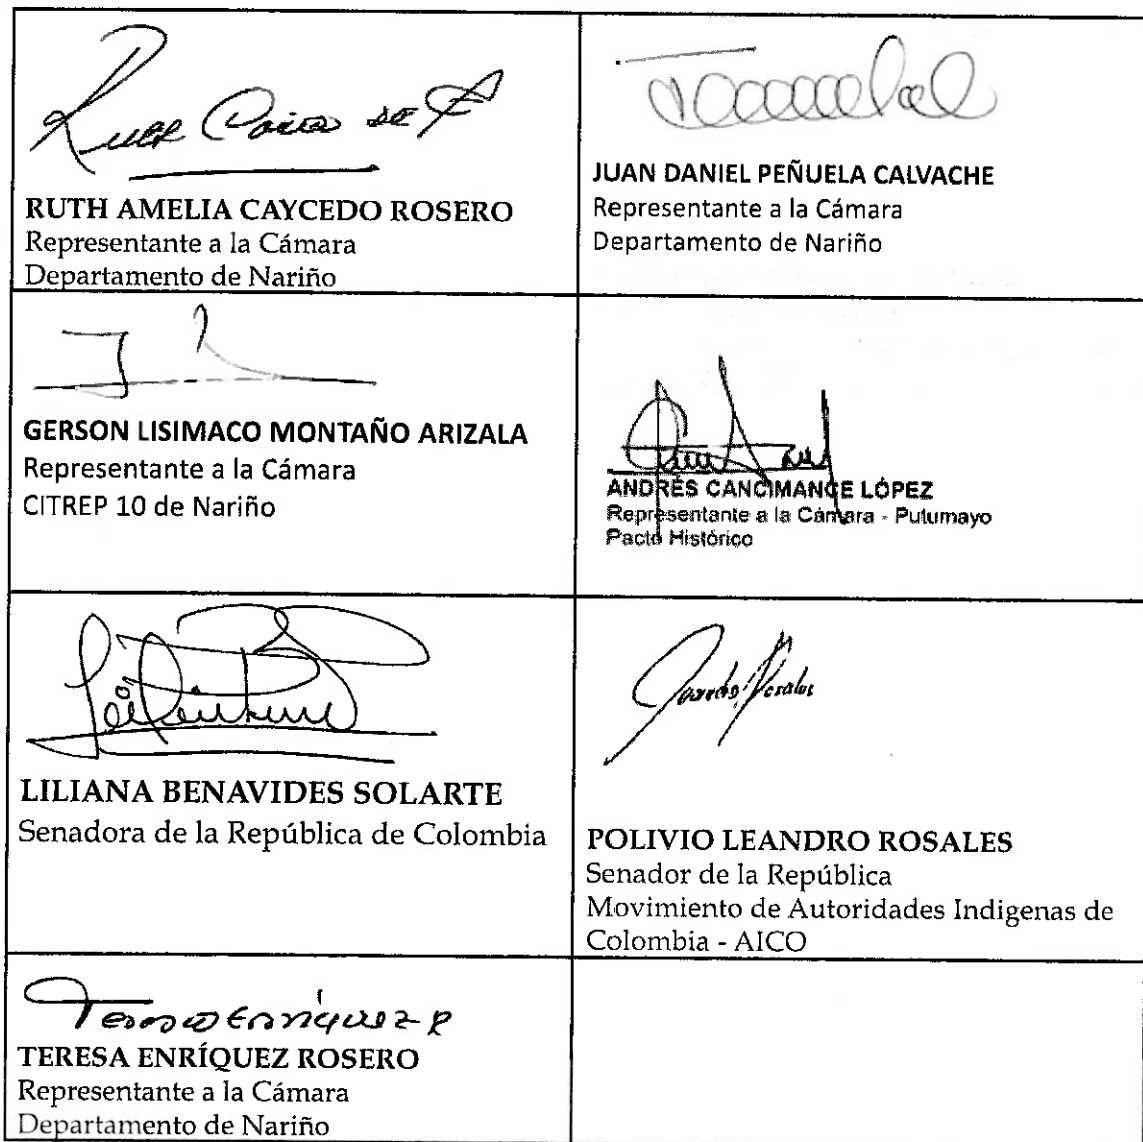 RUTH AMELIA CAYCEDO ROSERO
Representante a la Cámara
Departamento de Nariño
JUAN DANIEL PEÑUELA CALVACHE
Representante a la Cámara
Departamento de Nariño
GERSON LISIMACO MONTAÑO ARIZALA
Representante a la Cámara
CITREP 10 de Nariño
ANDRÉS CANCIMANCE LÓPEZ
Representante a la Cámara - Putumayo
Pacto Histórico
LILIANA BENAVIDES SOLARTE
Senadora de la República de Colombia
POLIVIO LEANDRO ROSALES
Senador de la República
Movimiento de Autoridades Indigenas de
Colombia - AICO
Teresa Enríquez R
TERESA ENRÍQUEZ ROSERO
Representante a la Cámara
Departamento de Nariño